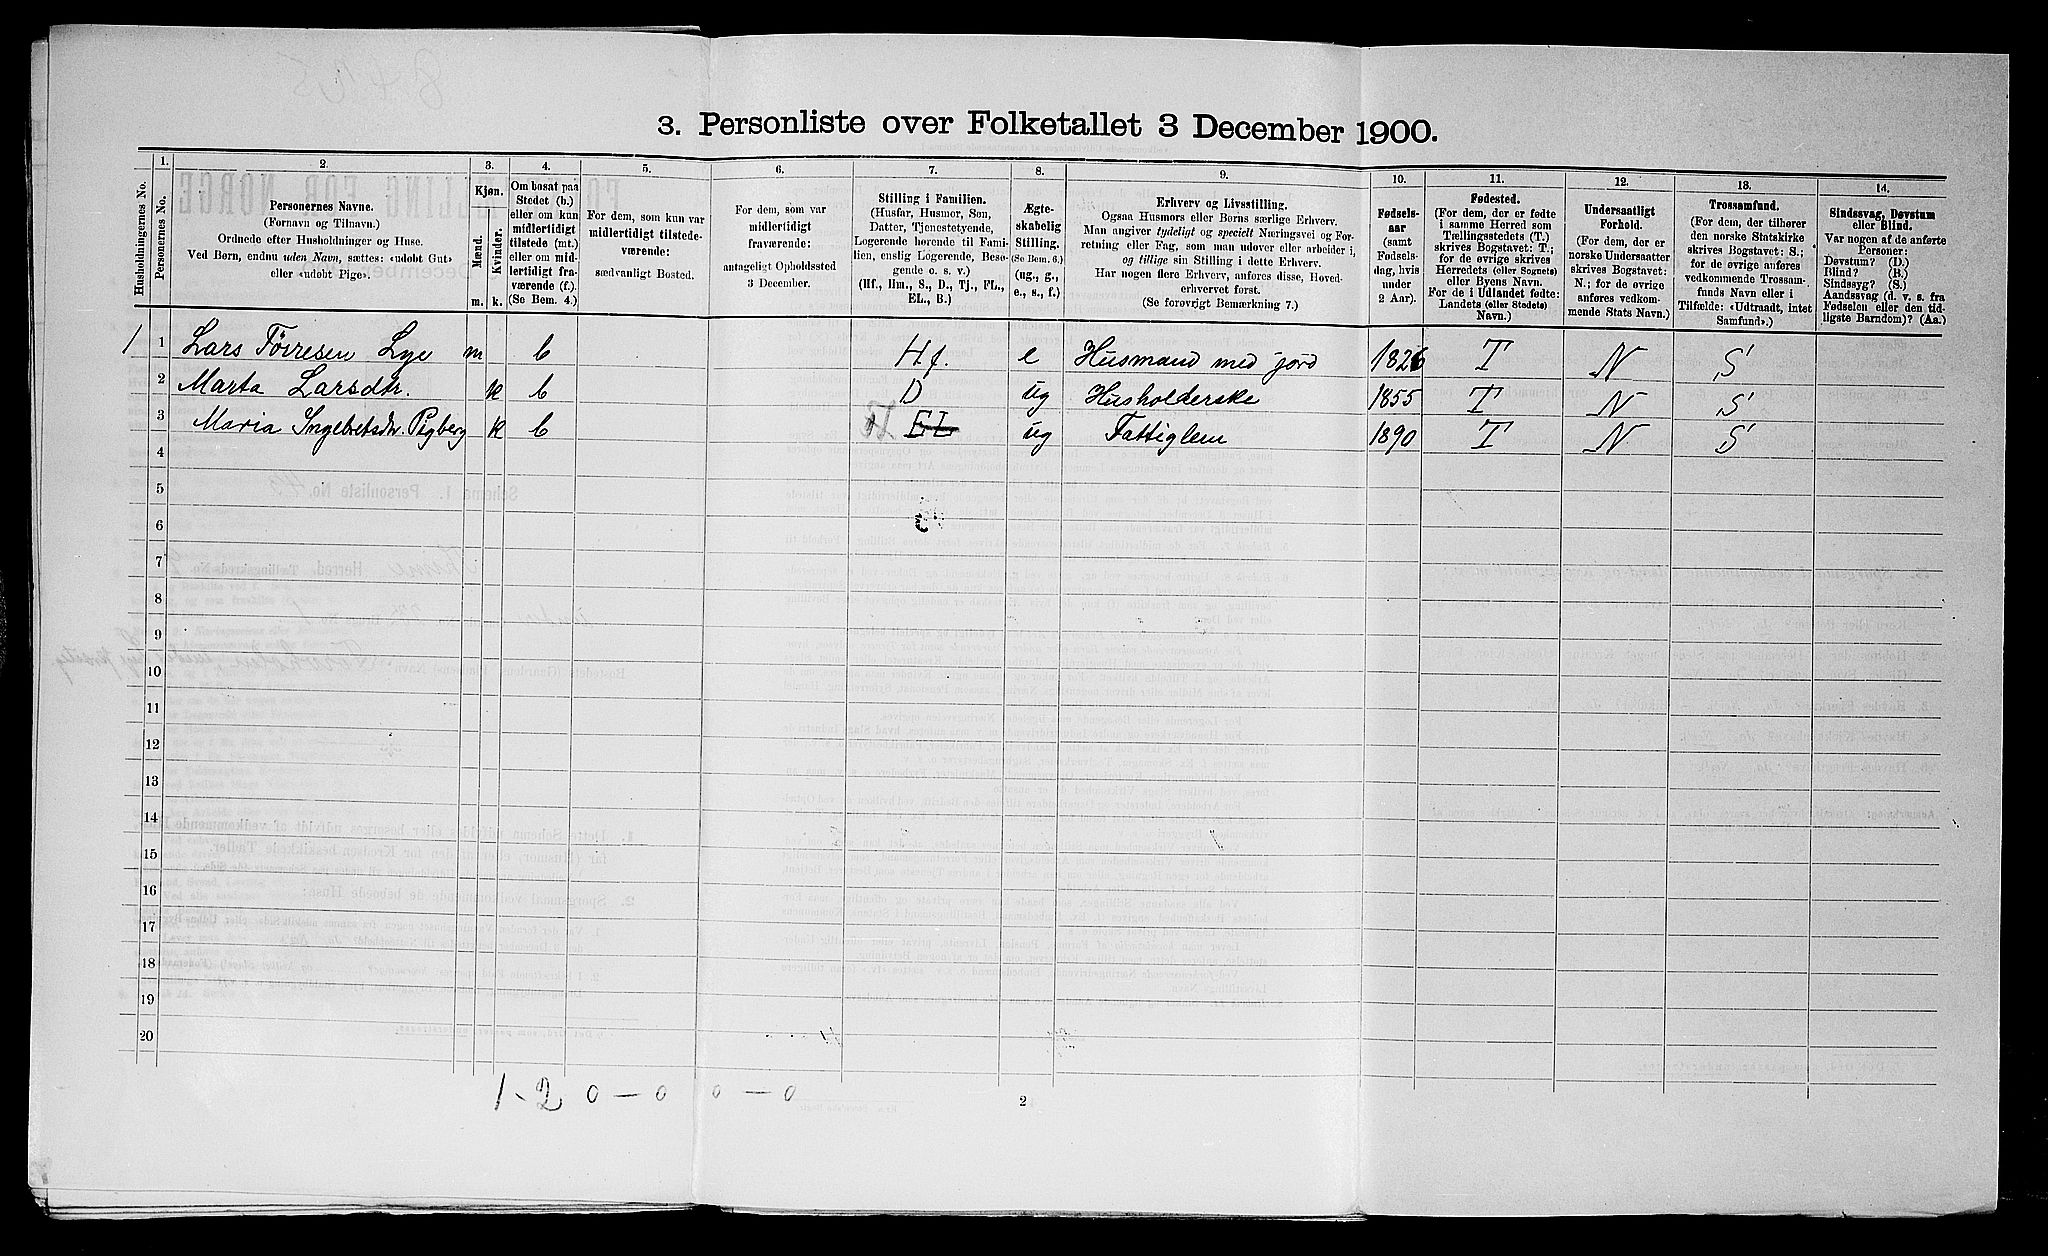 3. Personliste over Folketallet 3 December 1900.
Husholdningernes No.
1.
Personernes No.
2.
Personernes Navne.
(Fornavn og Tilnavn.)
Ordnede efter Husholdninger og Huse.
Ved Børn, endnu uden Navn, sættes: «udøbt Gut»
eller «udøbt Pige».
3.
Kjøn.
Mænd.
Kvinder.
m. k.
4.
Om bosat paa
Stedet (b.)
eller om kun
midlertidigt
tilstede (mt.)
eller om mid-
lertidigt fra-
værende (f.).
(Se Bem. 4.)
5.
For dem, som kun var
midlertidigt tilstede-
værende:
sædvanligt Bosted.
6.
For dem, som var
midlertidigt
fraværende:
antageligt Opholdssted
3 December.
7.
Stilling i Familien.
(Husfar, Husmor, Søn,
Datter, Tjenestetyende,
Logerende hørende til Fami-
lien, enslig Logerende, Besø-
gende o. s. v.)
(Hf., Hm., S., D., Tj., FL.,
EL., B.)
8.
Ægte-
skabelig
Stilling.
(Se Bem. 6.)
(ug., g.,
e., s., f.)
9.
Erhverv og Livsstilling.
Ogsaa Husmors eller Børns særlige Erhverv.
Man angiver tydeligt og specielt Næringsvei og For-
retning eller Fag, som man udover eller arbeider i,
og tillige sin Stilling i dette Erhverv.
Har nogen flere Erhverv, anføres disse, Hoved-
erhvervet først.
(Se forøvrigt Bemærkning 7.)
10.
Fødsels-
aar
(samt
Fødsels-
dag, hvis
under
2 Aar).
11.
Fødested.
(For dem, der er fødte
i samme Herred som
Tællingsstedets (T.)
skrives Bogstavet: T;
for de øvrige skrives
Herredets (eller Sognets)
eller Byens Navn.
For de i Udlandet fødte:
Landets (eller Stedets)
Navn.)
12.
Undersaatligt
Forhold.
(For dem, der er
norske Undersaatter
skrives Bogstavet:
N.; for de øvrige
anføres vedkom-
mende Stats Navn.)
13.
Trossamfund.
(For dem, der tilhører
den norske Statskirke
skrives Bogstavet: S.;
for de øvrige anføres
vedkommende Trossam-
funds Navn eller i
Tilfælde: «Udtraadt, intet
Samfund».)
14.
Sindssvag, Døvstum
eller Blind.
Var nogen af de anførte
Personer:
Døvstum? (D.)
Blind? (B.)
Sindssyg? (S.)
Aandssvag (d. v. s. fra
Fødselen eller den tid-
ligste Barndom)? (Aa.)
1 1 Lars Törresen Lye m b Hf. e Husmand med jord 1826 T N S
2 Marta Larsdtr. k b D ug Husholderske 1855 T N S
3 Maria Ingebretsdtr. Pigberg k b FL EL ug Fattiglem 1890 T N S
4
5
6
7
8
9
10
11
12
13
14
15
16
17
18
19
20
1 - 2 0 - 0 0 - 0
2